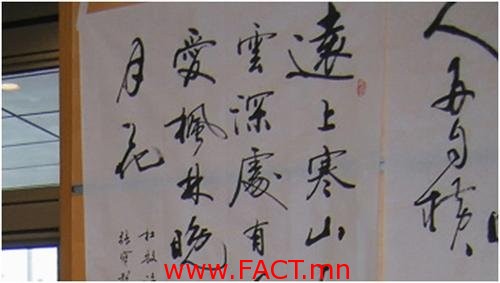 人舟自横
遠上寒山
雲深處有
愛楓林晚
月花
杜牧詩
www.FACT.mn